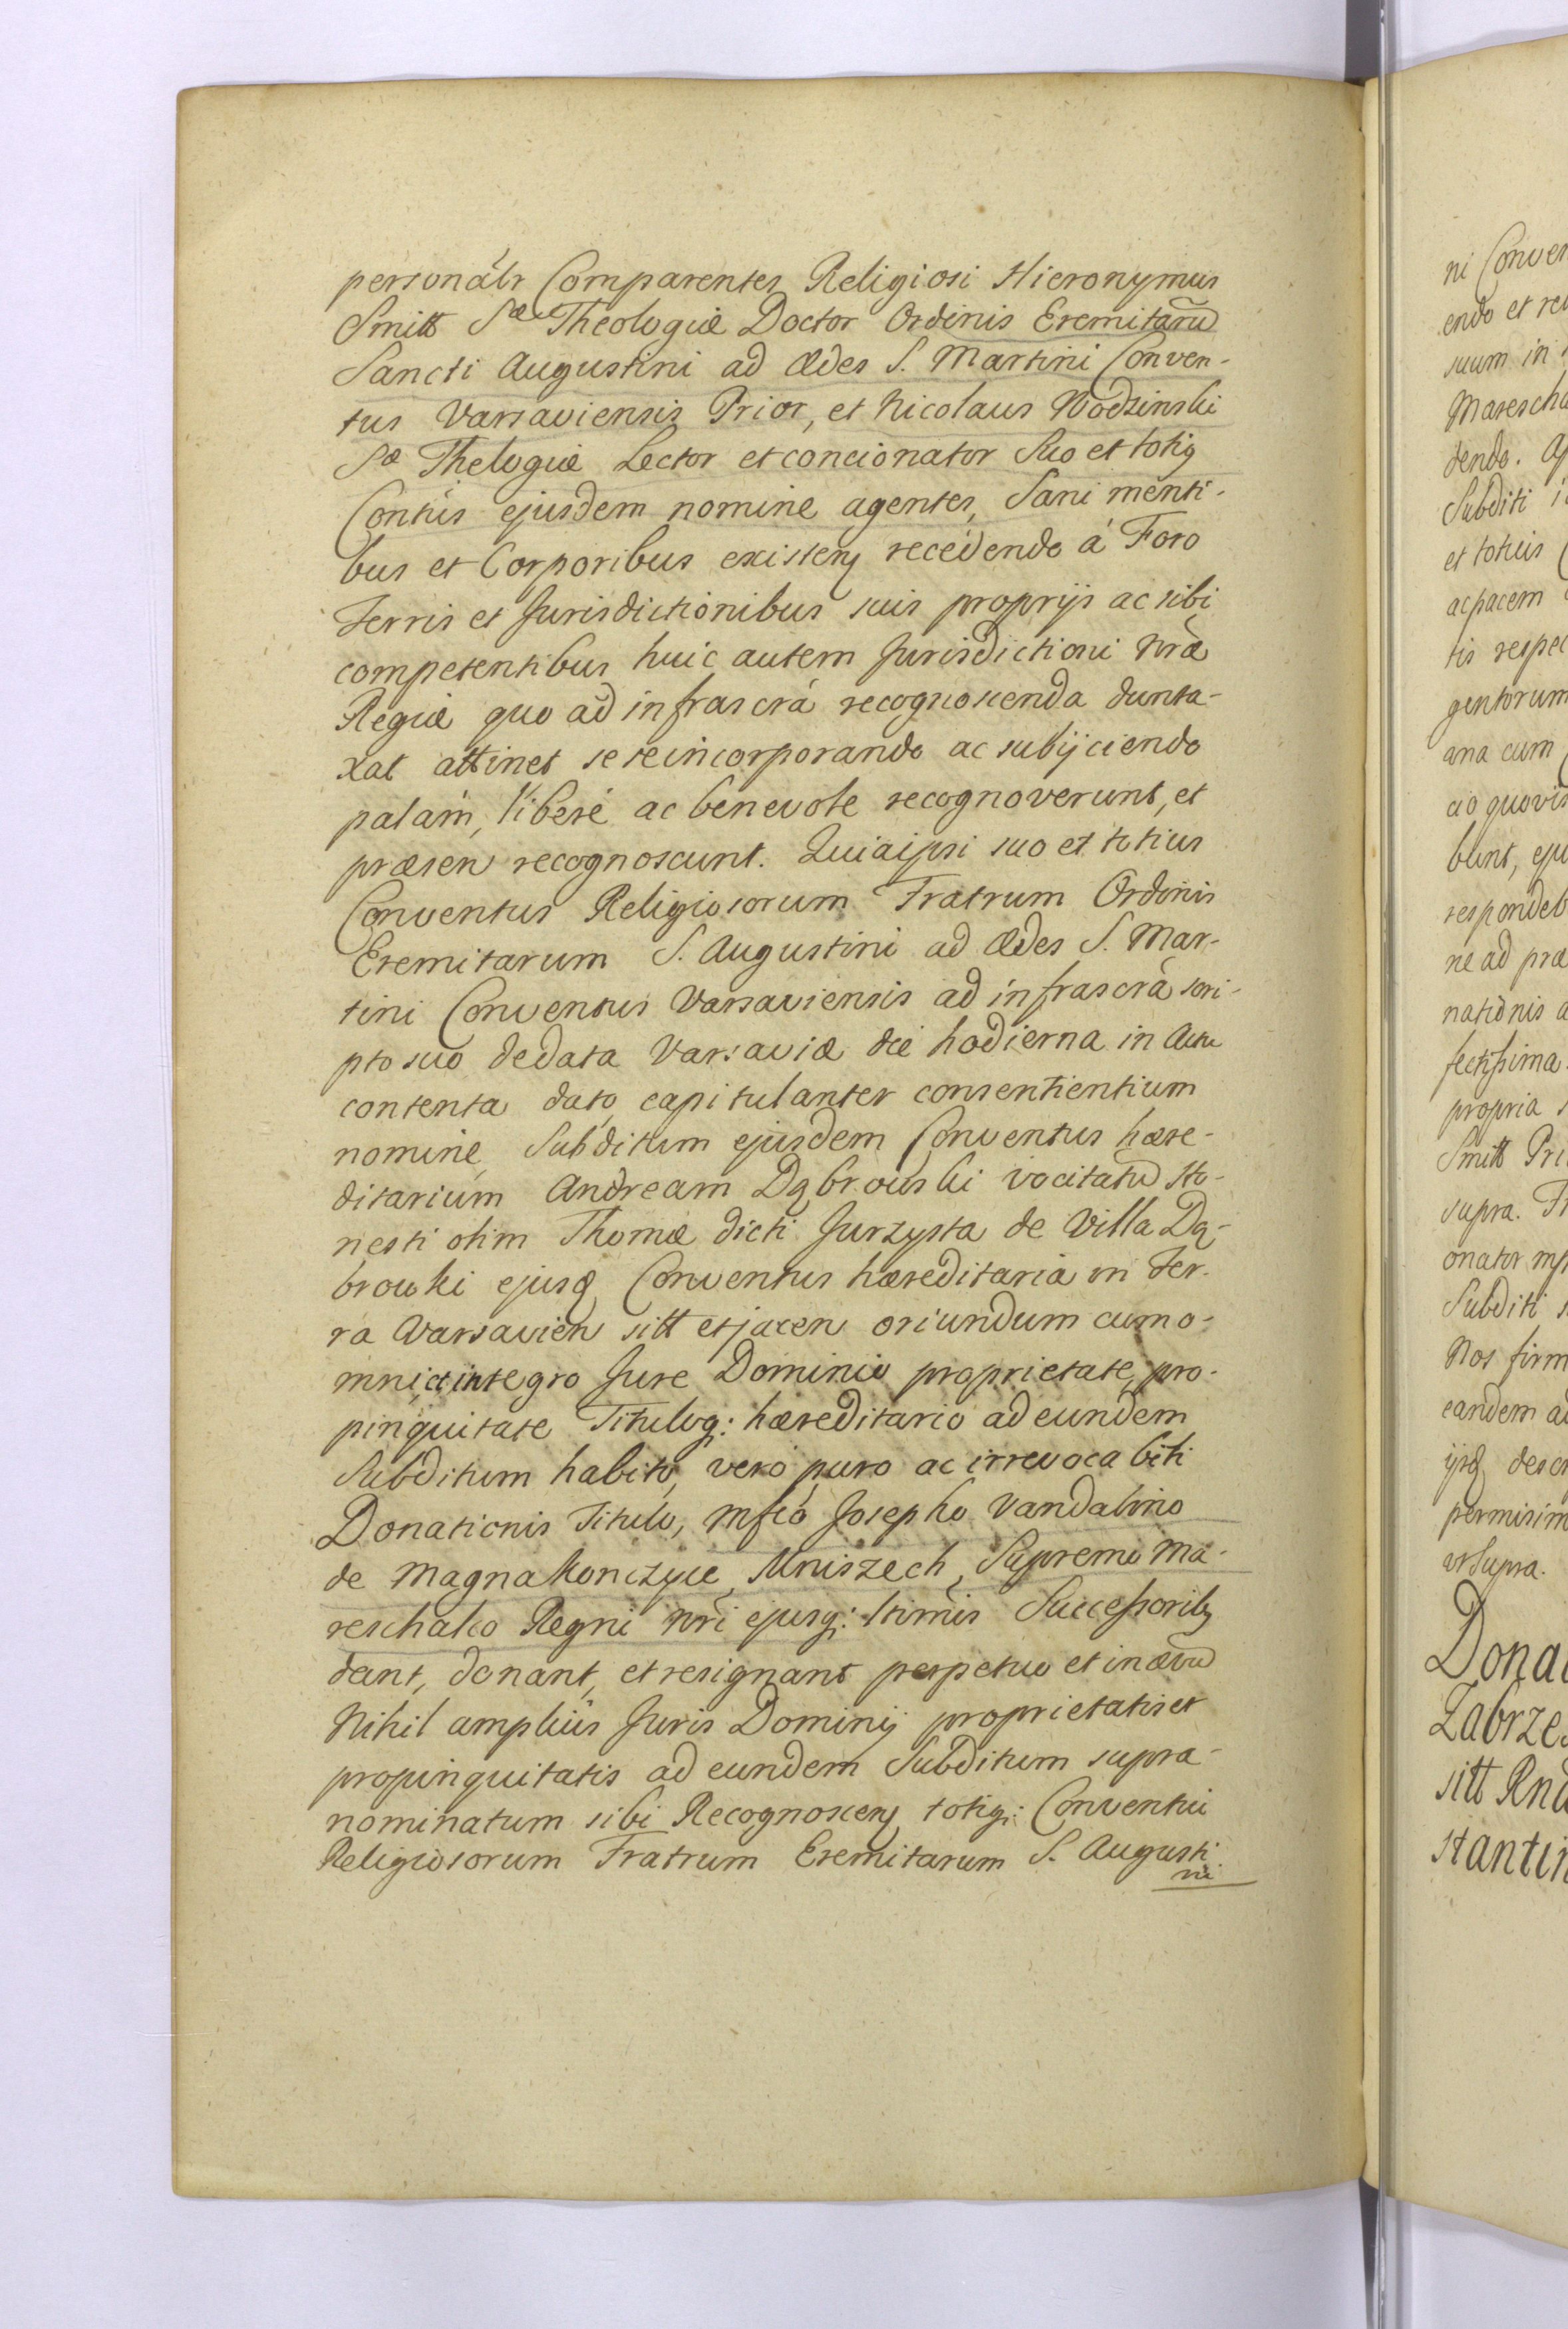 personálr Comparentes Religiosi Hieronymus
Smitt Sæ Theologiæ Doctor Ordinis Eremitarũ
Sancti Augustini ad Ædes S. Martini Conven-
tus Varsaviensis Prior, et Nicolaus Wodzinski
Sæ Thelogiæ Lector et concionator Suo et totiq
Contûs ejusdem nomine agentes, Sani menti-
bus et Corporibus existen recedendo á Foro
Terris et Jurisdictionibus suis proprijs ac sibi
competentibus huic autem Jurisdictioni nræ
Regiæ quo ad infrascrá recognoscenda dunta-
xat attinet sese incorporando ac subijciendo
palám, liberé ac benevole recognoverunt, et
præsen recognoscunt. Quia ipsi suo et totius
Conventus Religiosorum Fratrum Ordinis
Eremitarum S. Augustini ad Ædes S. Mar-
tini Conventus Varsaviensis ad infrascrá scri-
pto suo de data Varsaviæ die hodierna in Actu
contenta dato capitulanter consentientium
nomine Subditum ejusdem Conventus hære-
ditarium Andream Dąbrowski vocitatũ Ho-
nesti olim Thomæ dicti Jurzysta de Villa Dą-
browki ejusq Conventus hæreditaria in Ter-
ra Varsavien sitt et jacen oriundum cum o-
mni et integro Jure Dominio proprietate pro-
pinquitate Tituloq: hæreditario ad eundem
Subditum habito, vero puro ac irrevocabili
Donationis Titulo, Mfco Josepho Vandalino
de Magna Konczyce Mniszech, Supremo Ma-
reschalco Regni nri ejusq: ltimis Successorib
dant, donant, et resignant perpetuo et in ævũ
Nihil ampliús Juris Dominij proprietatis et
propinquitatis ad eundem Subditum supra-
nominatum sibi Recognoscen totiq: Conventui
Religiosorum Fratrum Eremitarum S. Augusti
ni
ni Conven
endo et re
suum in
Marescha
dendo.
Subditi
et totius
ac pacem
tis respec
gentorum
ana cum
cio quovis
bunt, eju
respondeb
ne ad præ
nationis a
fectissima
propria s
Smitt Pri
supra. Fr
onator mp
Subditi
Nos firm
eandem a
ijsq descr
permisim
ut supra.
Dona
Zabrze
sitt Rnd
stantin